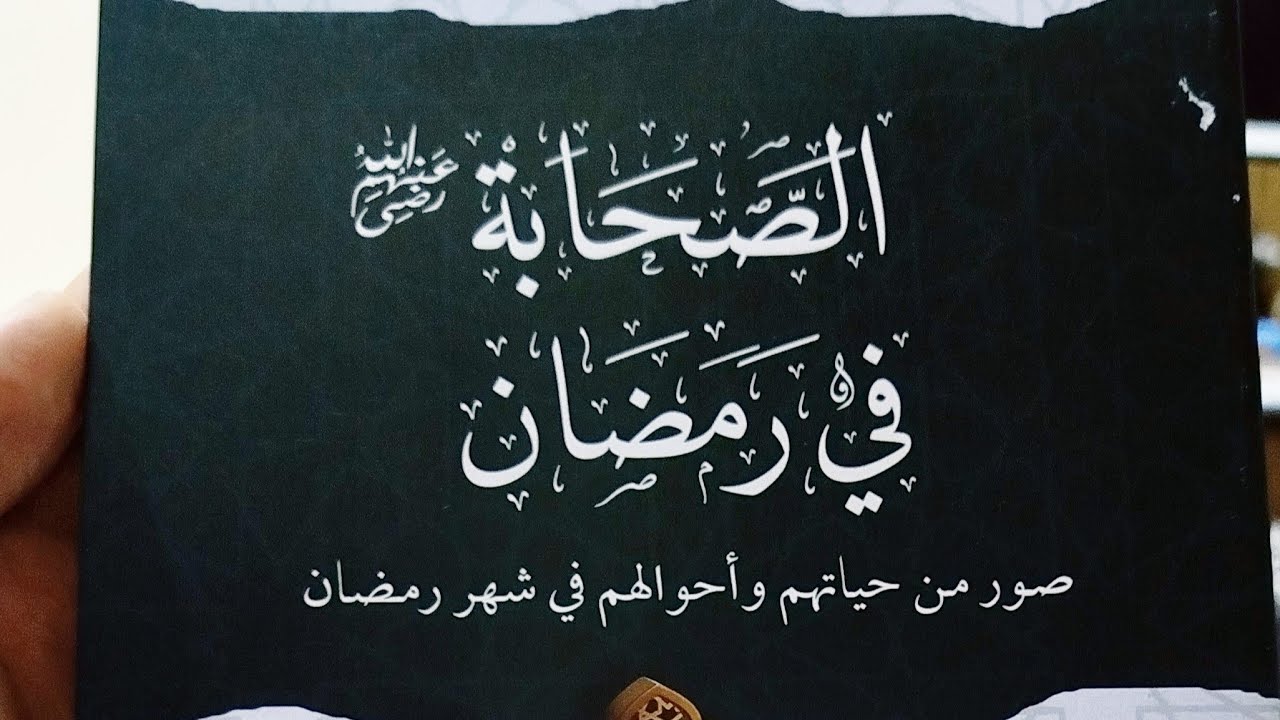 الصَّحَابَةْ رَضِيَ اللهُ عَنْهُم
فِيْ رَمَضَان
صور من حياتهم وأحوالهم في شهر رمضان